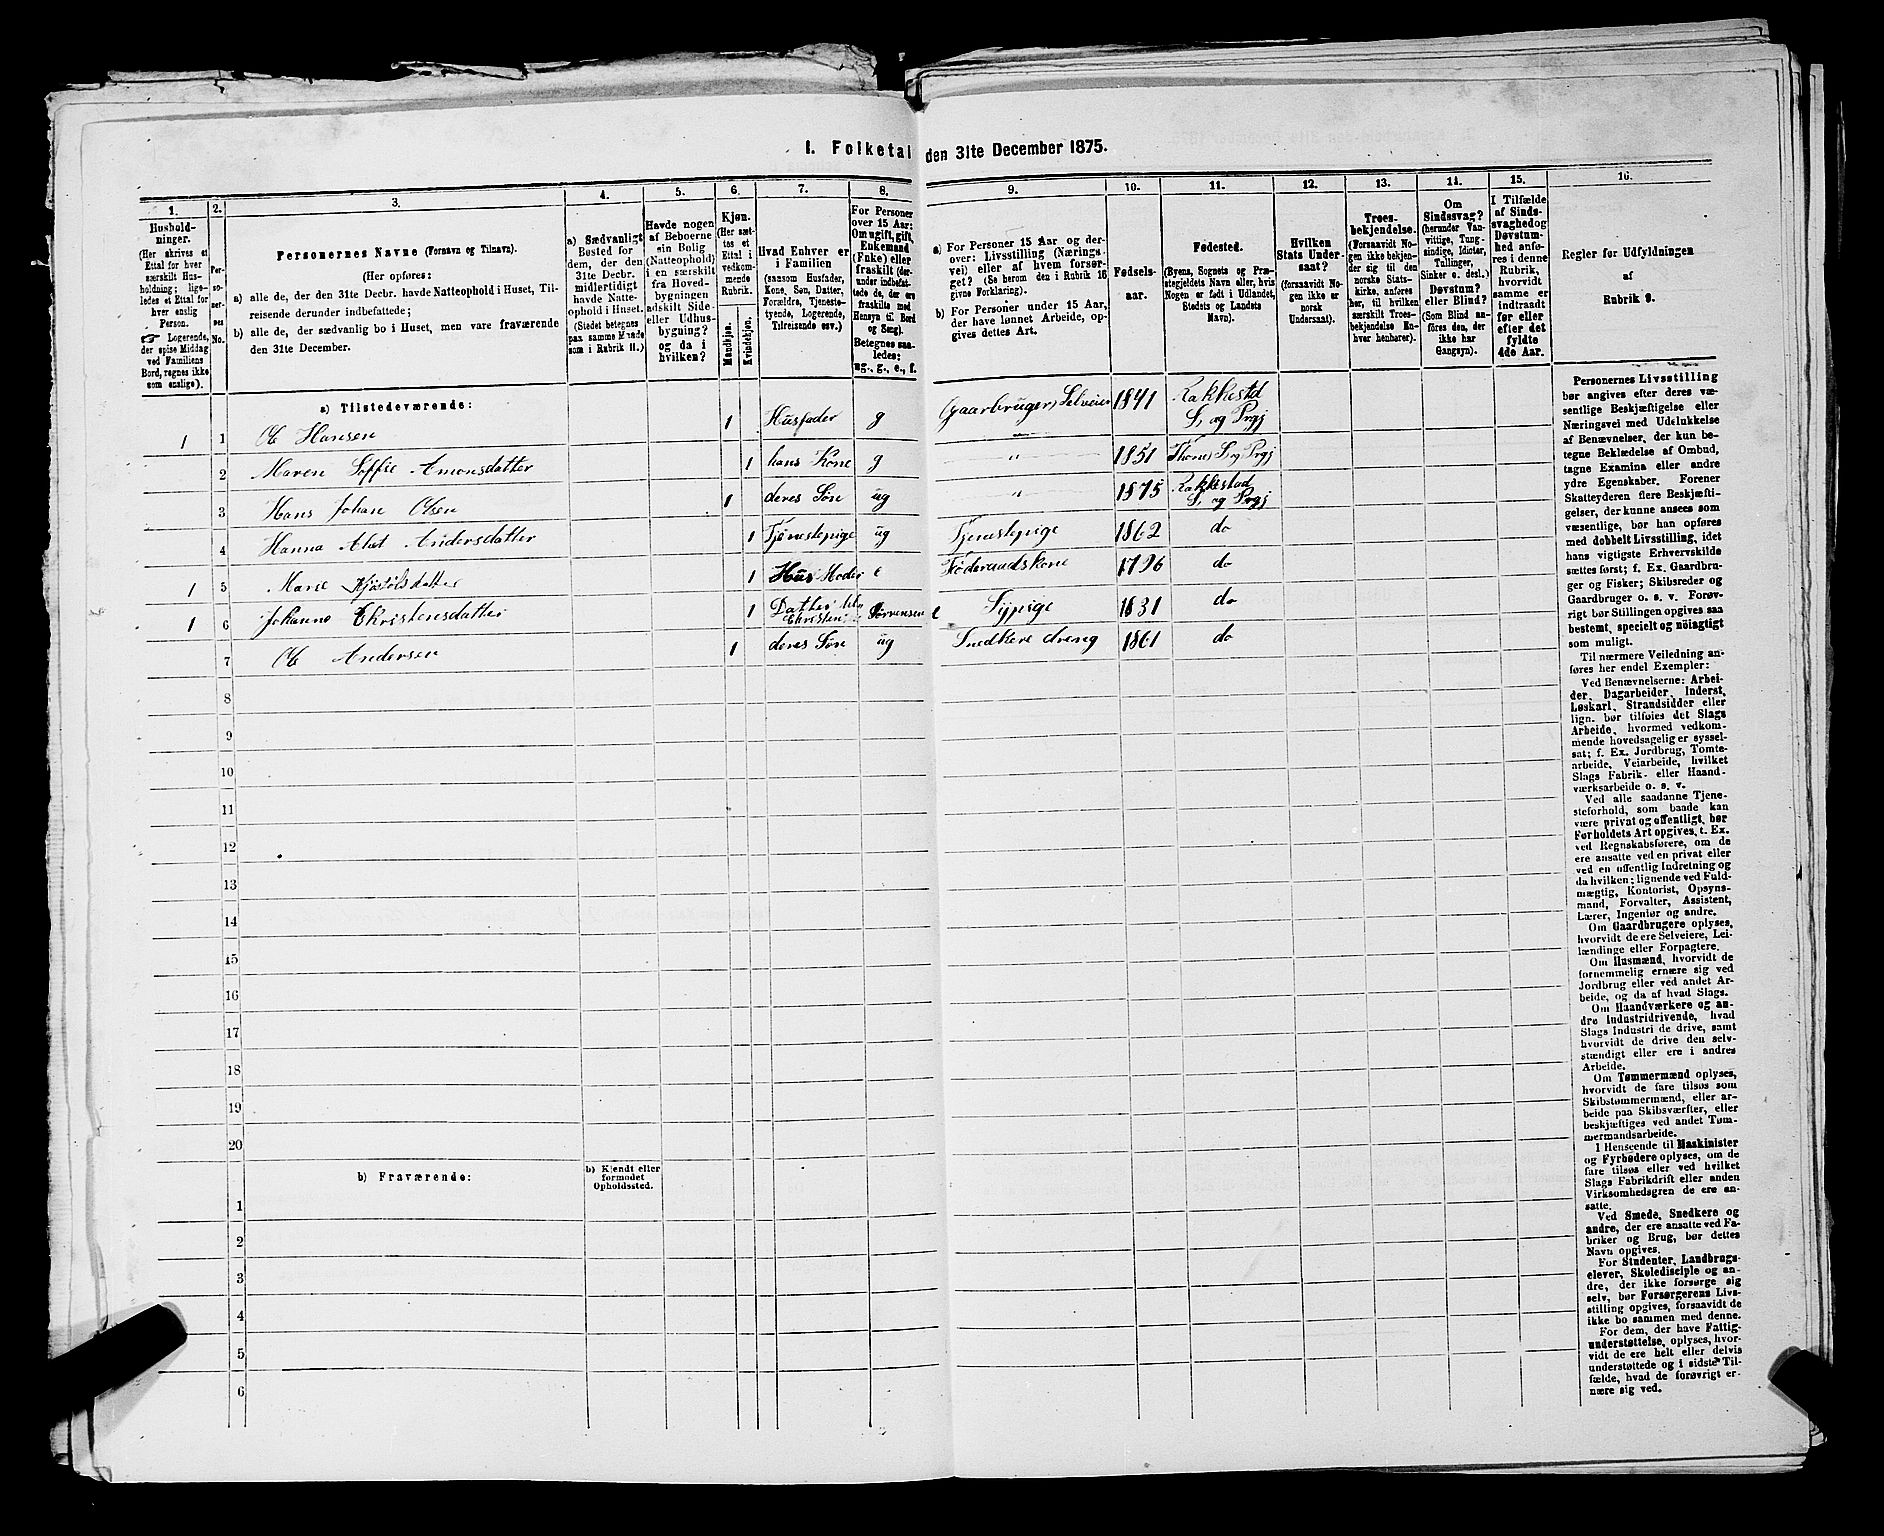 I. Folketal den 31te December 1875.
1.
Husholdninger.
(Her skrives et
Ettal for hver
særskilt Husholdning;
ligeledes et Ettal for
hver enslig
Person.
☞ Logerende,
der spise Middag
ved Familiens
Bord, regnes ikke
som enslige).
2.
Personernes
No.
3.
Personernes Navne (Fornavn og Tilnavn).
(Her opføres:
a) alle de, der den 31te Decbr. havde Natteophold i Huset, Tilreisende derunder indbefattede;
b) alle de, der sædvanlig bo i Huset, men vare fraværende
den 31te December.
4.
a) Sædvanligt
Bosted for
dem, der den
31te Decbr.
midlertidigt
havde Natteophold i Huset.
(Stedet betegnes
paa samme Maade
som i Rubrik 11.)
5.
Havde nogen
af Beboerne
sin Bolig
(Natteophold)
i en særskilt
fra Hovedbygningen
adskilt Side- eller Udhusbygning?
og da i
hvilken?
6.
Kjøn.
(Her sættes et
Ettal i
vedkommende
Rubrik.
Mandkjøn.
Kvindekjøn.
7.
Hvad Enhver er
i Familien
(saasom Husfader,
Kone, Søn, Datter,
Forældre, Tjenestetyende, Logerende,
Tilreisende osv.)
8.
For Personer
over 15 Aar:
Om ugift, gift,
Enkemand
(Enke) eller
fraskilt (derunder indbefattede de, der ere
fraskilte med
Hensyn til Bord
og Seng).
Betegnes saaledes:
ug., g., e., f.
9.
a) For Personer 15 Aar og derover: Livsstilling (Næringsvei) eller af hvem forsørget? (Se herom den i Rubrik 16
givne Forklaring).
b) For Personer under 15 Aar,
der have lønnet Arbeide, opgives dettes Art.
10.
Fødselsaar.
11.
Fødested.
(Byens, Sognets og Præstegjeldets Navn eller, hvis
Nogen er født i Udlandet,
Stedets og Landets
Navn).
12.
Hvilken
Stats Undersaat?
(forsaavidt Nogen ikke er
norsk
Undersaat).
13.
Troesbekjendelse.
(Forsaavidt Nogen ikke bekjender sig til den
norske Statskirke, anføres
her, til hvilken
særskilt Troesbekjendelse Enhver henhører).
14.
Om
Sindssvag?
(herunder Vanvittige, Tungsindige, Idioter,
Tullinger,
Sinker o. desl.)
Døvstum?
eller Blind?
(Som Blind anføres den, der
ikke har
Gangsyn).
15.
I Tilfælde
af Sindssvaghed og
Døvstumhed anføres i denne
Rubrik,
hvorvidt
samme er
indtraadt
før eller
efter det
fyldte
4de Aar.
16.
Regler for Udfyldningen
af
Rubrik 9.
a) Tilstedeværende:
1 1 Ole Hansen 1 Husfader g Gaarbruger, Selveier 1841 Rakkestad S. og Prgj
2 Maren Soffie Amonsdatter 1 hans Kone g " 1851 S. og Prgj
3 Hans Johan Olsen 1 deres Søn ug " 1875 Rakkestad S. og Prgj
4 Hanna Andersdatter 1 Tjenestepige ug Tjenestepige 1862 do
1 5 Marie 1 Hus Moder e Føderaadskone 1796 do
1 6 Johanne Christensdatter 1 Datter Christen Sørensen e Sypige 1831 do
7 Ole Andersen 1 deres Søn ug Snedkere dreng 1861 do
8
9
10
11
12
13
14
15
16
17
18
19
20
b) Fraværende:
b) Kjendt eller
formodet
Opholdssted.
1
2
3
4
5
6
Personernes Livsstilling
bør angives efter deres væsentlige Beskjæftigelse eller
Næringsvei med Udelukkelse
af Benævnelser, der kun betegne Beklædelse af Ombud,
tagne Examina eller andre
ydre Egenskaber. Forener
Skatteyderen flere Beskjæftigelser, der kunne ansees som
væsentlige, bør han opføres
med dobbelt Livsstilling, idet
hans vigtigste Erhvervskilde
sættes først; f. Ex. Gaardbruger og Fisker; Skibsreder og
Gaardbruger o. s. v. Forøvrigt bør Stillingen opgives saa
bestemt, specielt og nöiagtigt
som muligt.
Til nærmere Veiledning anføres her endel Exempler:
Ved Benævnelserne: Arbeider, Dagarbeider, Inderst,
Løskarl, Strandsidder eller
lign. bør tilføies det Slags
Arbeide, hvormed vedkommende hovedsagelig er sysselsat; f. Ex. Jordbrug, Tomtearbeide, Veiarbeide, hvilket
Slags Fabrik- eller Haandværksarbeide o. s. v.
Ved alle saadanne Tjenesteforhold, som baade kan
være privat og offentligt, bør
Forholdets Art opgives, t. Ex.
ved Regnskabsførere, om de
ere ansatte ved en privat eller
ved en offentlig Indretning og
da hvilken; lignende ved Fuldmægtig, Kontorist, Opsynsmand, Forvalter, Assistent,
Lærer, Ingeniør og andre.
Om Gaardbrugere oplyses,
hvorvidt de ere Selveiere, Leilændinge eller Forpagtere.
Om Husmænd, hvorvidt de
fornemmelig ernære sig ved
Jordbrug eller ved andet Arbeide, og da af hvad Slags.
Om Haandværkere og andre Industridrivende, hvad
Slags Industri de drive, samt
hvorvidt de drive den selvstændigt eller ere i andres
Arbeide.
Om Tømmermænd oplyses,
hvorvidt de fare tilsøs som
Skibstømmermænd, eller arbeide paa Skibsværfter, eller
beskjæftiges ved andet Tømmermandsarbeide.
I Henseende til Maskinister
og Fyrbødere oplyses, om de
fare tilsøs eller ved hvilket
Slags Fabrikdrift eller anden
Virksomhedsgren de ere ansatte.
Ved Smede, Snedkere og
andre, der ere ansatte ved Fabriker og Brug, bør dettes
Navn opgives.
For Studenter, Landbrugselever, Skoledisciple og andre, der ikke forsørge sig
selv, bør Forsørgerens Livsstilling opgives, forsaavidt de
ikke bo sammen med denne.
For dem, der have Fattigunderstøttelse, oplyses, hvorvidt de ere helt eller delvis
understøttede og i sidste Tilfælde, hvad de forøvrigt ernære sig ved.